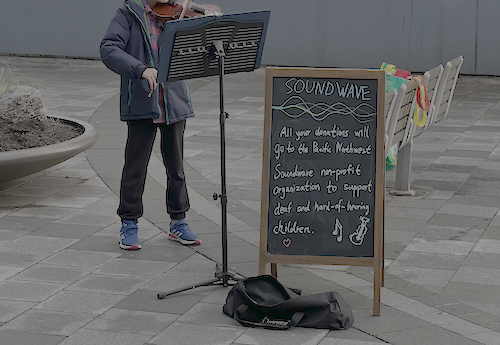 SOUNDWAVE
All your donations will
go to the Pacific Northwest
Soundwave non-profit
organization to support
deaf and hard-of-hearing
children.